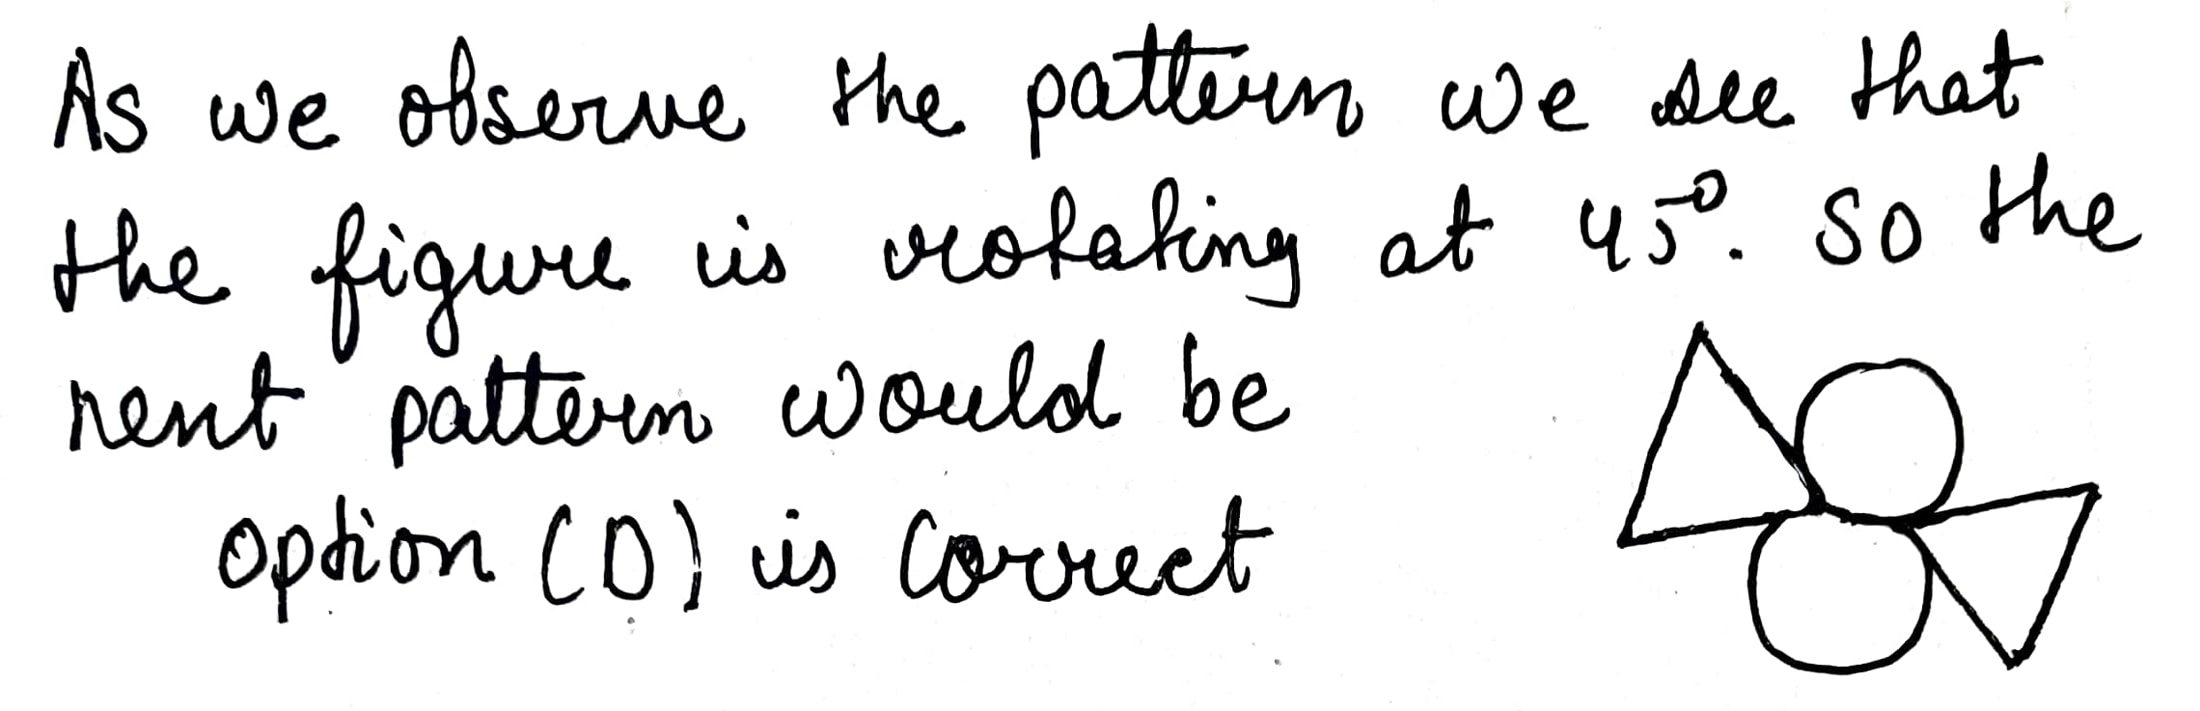 As we observe the pattern we see that
the figure is rotating at 45°. So the
next pattern would be
option (D) is Correct